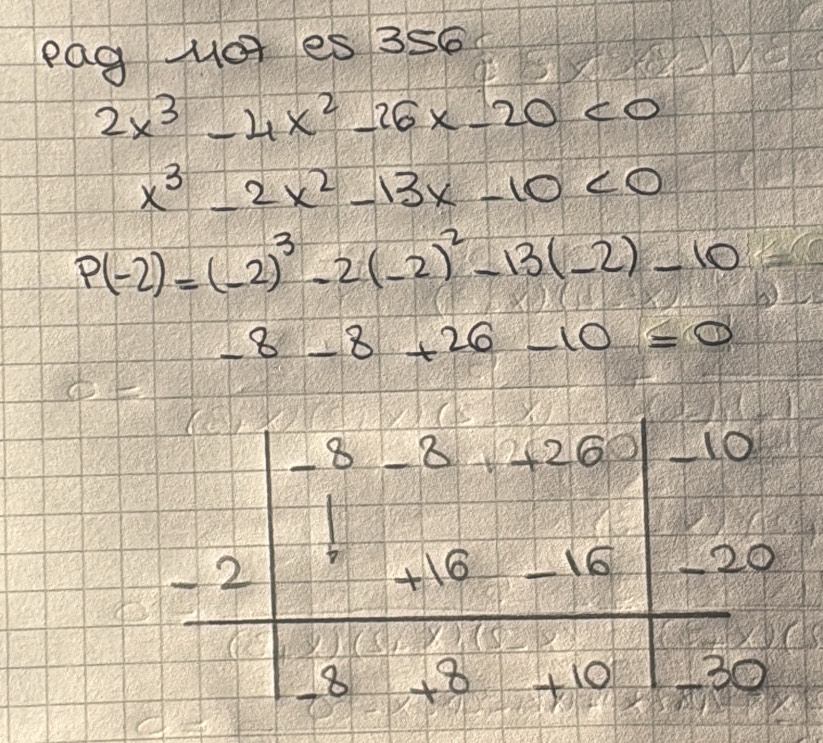 pag 407 es 356
2x³ -4x² -26x -20 <0
x³ -2x² -13x -10 <0
P(-2) = (-2)³ -2(-2)² -13(-2) -10
-8 -8 +26 -10 = 0
-8 -8 +26 -10
-2 +16 -16 -20
-8 +8 +10 -30